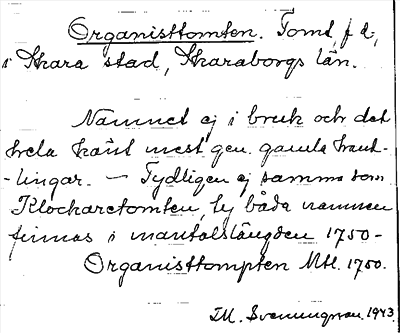 Organisttomten. Tomt, f.d.,
i Skara stad, Skaraborgs län.
Namnet ej i bruk och det
hela känt mest gen. gamla hand-
-lingar. — Tydligen ej samma som
Klockaretomten, ty båda namnen
finnas i mantalslängden 1750 -
Organisttompten Mtl. 1750.
I.M. Svenungsson. 1943.